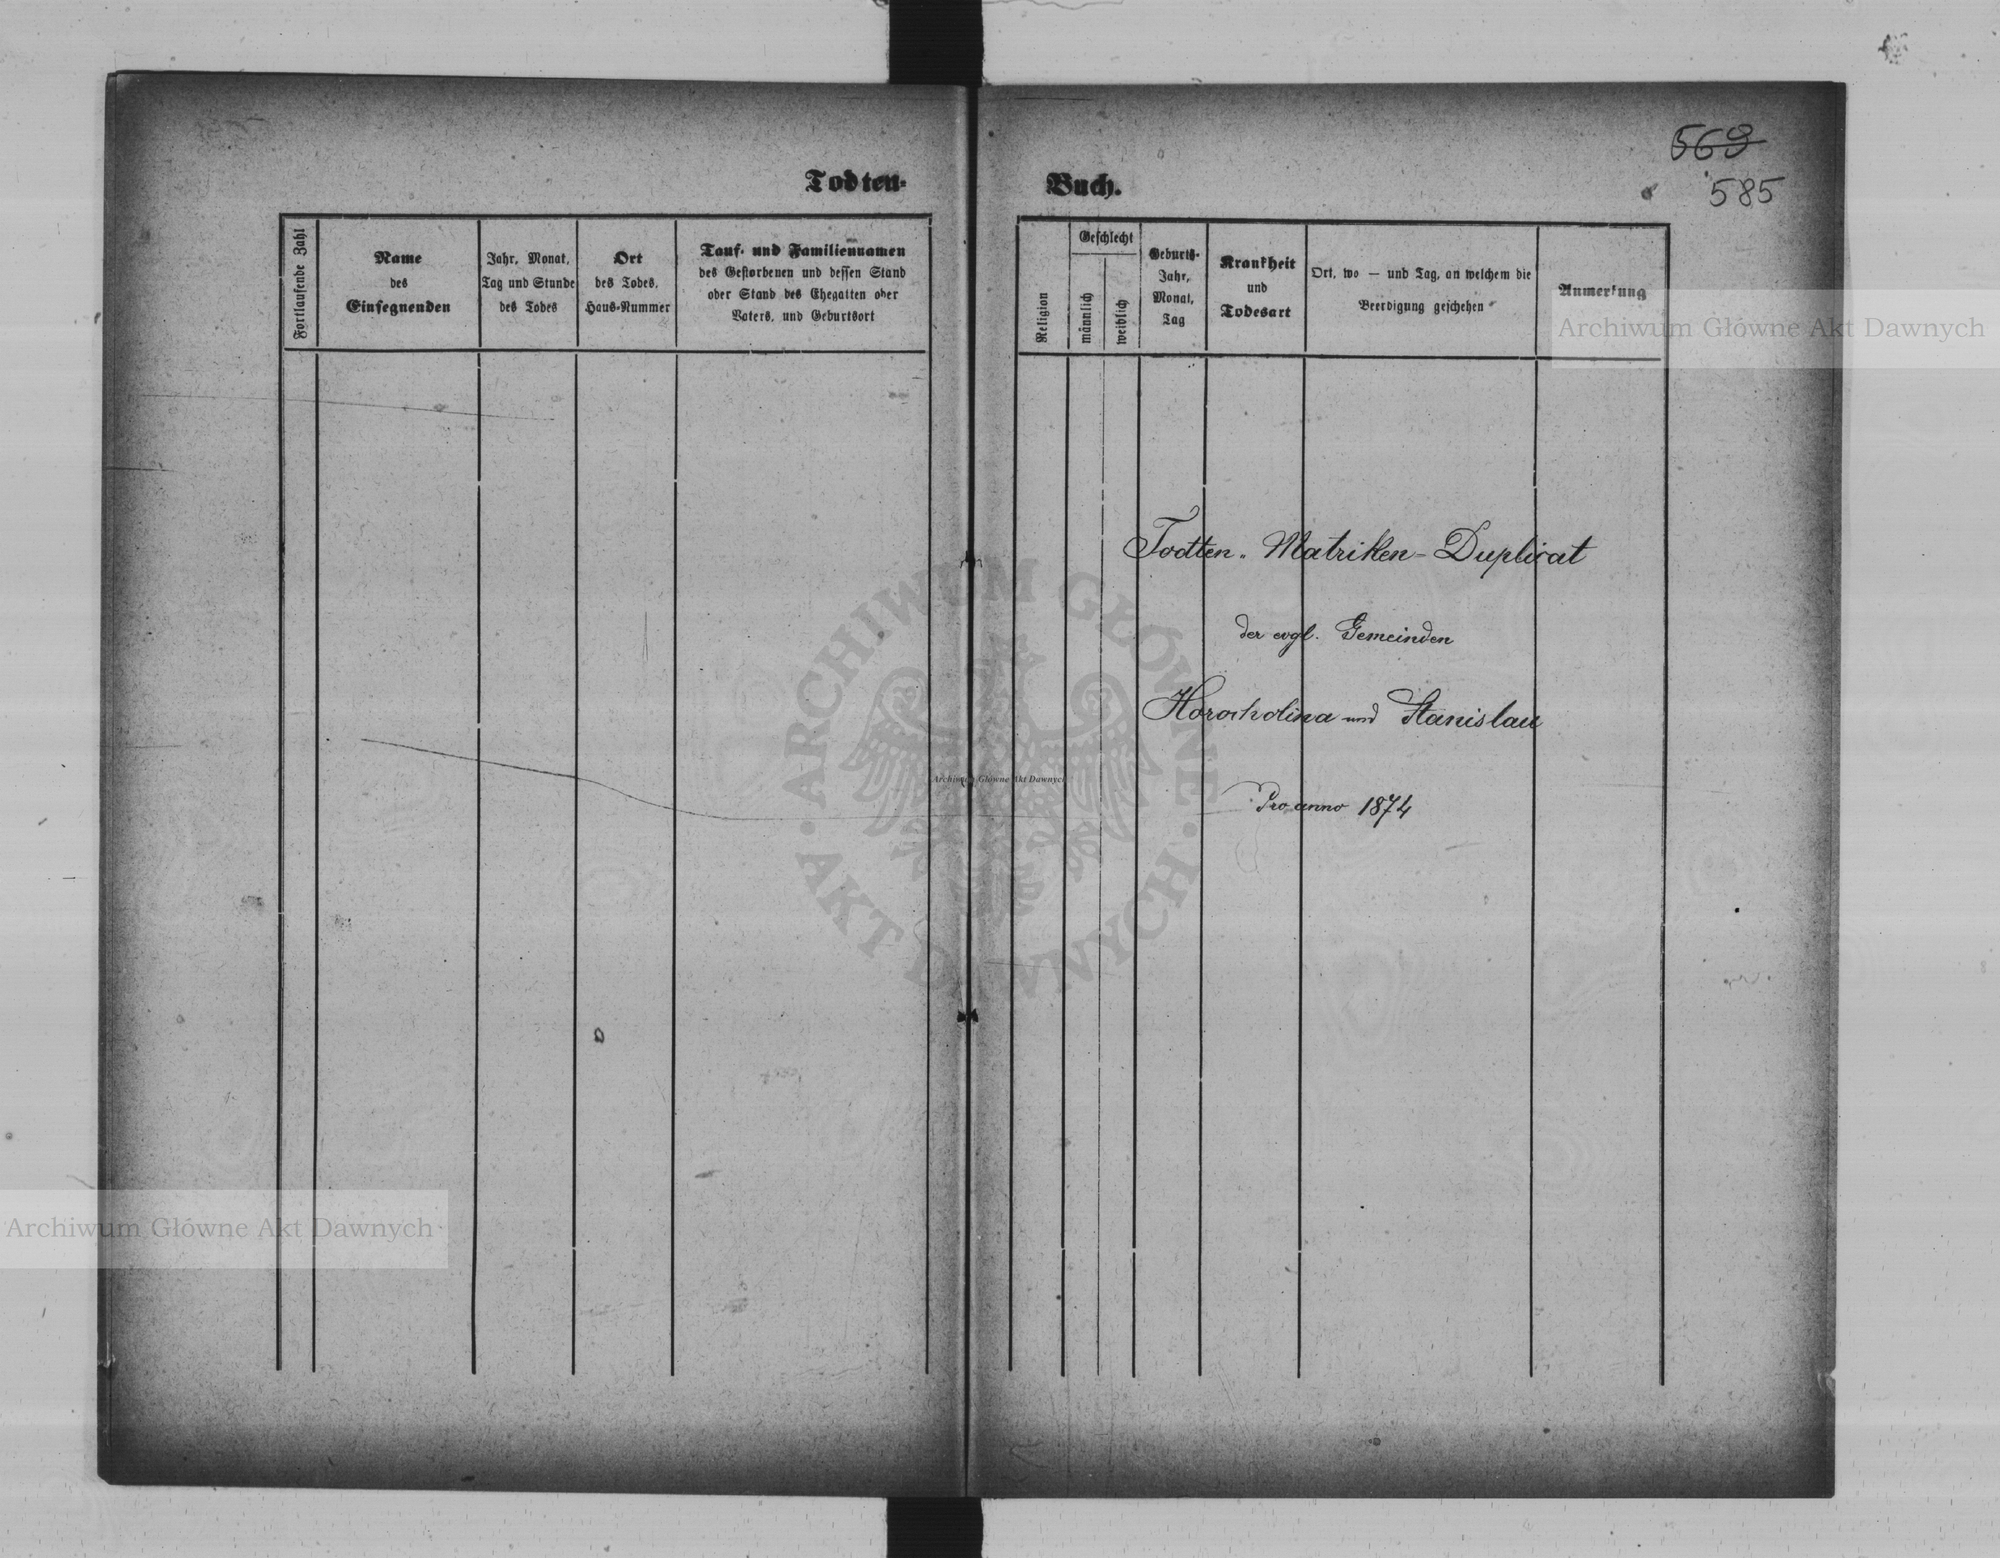 569
585
Todten-
Buch.
Fortlaufende Zahl
Name
des
Einsegnenden
Jahr, Monat,
Tag und Stunde
des Todes
Ort
des Todes,
Haus-Nummer
Tauf- und Familiennamen
des Gestorbenen und dessen Stand
oder Stand des Ehegatten oder
Vaters, und Geburtsort
Religion
Geschlecht
männlich
weiblich
Geburts-
Jahr,
Monat,
Tag
Krankheit
und
Todesart
Ort, wo — und Tag, an welchem die
Beerdigung geschehen
Anmerkung
Archiwum Główne Akt Dawnych
Todten-Matriken-Duplicat
der evgl. Gemeinden
Horocholina und Stanislau
Pro anno 1874
ARCHIWUM GŁÓWNE
AKT DAWNYCH
Archiwum Główne Akt Dawnych
Archiwum Główne Akt Dawnych